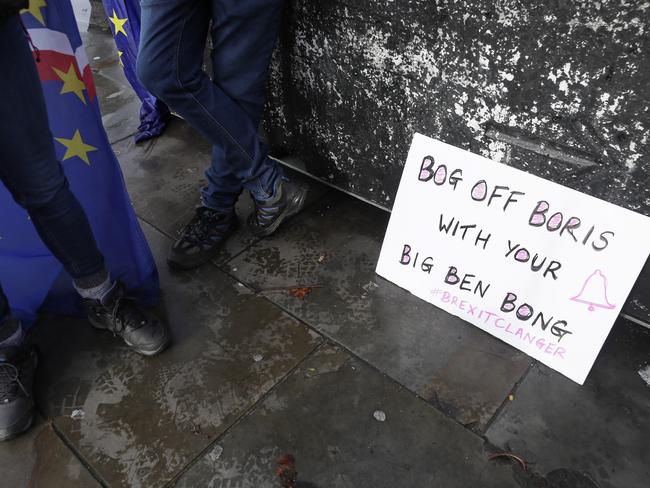 BOG OFF BORIS
WITH YOUR
BIG BEN BONG
#BREXITCLANGER